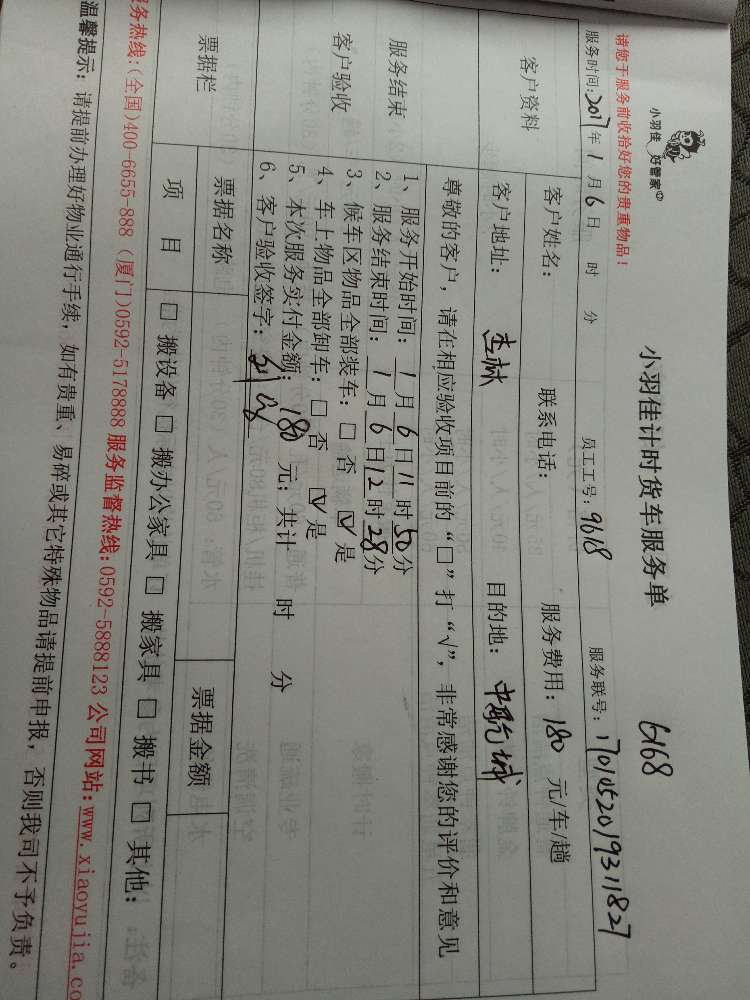 小羽佳 好管家
小羽佳计时货车服务单
6168
请您于服务前收拾好您的贵重物品！
服务时间：2017年1月6日 时 分 员工工号：9618 服务联号：1701052019311827
客户资料
客户姓名： 联系电话： 服务费用：180 元/车/趟
客户地址：杏林 目的地：中联城
尊敬的客户，请在相应验收项目前的“□”打“√”，非常感谢您的评价和意见
服务结束
客户验收
1、服务开始时间：1月6日11时50分
2、服务结束时间：1月6日12时28分
3、候车区物品全部装车：□ 否 ☑ 是
4、车上物品全部卸车：□ 否 ☑ 是
5、本次服务实付金额：180 元；共计 时 分
6、客户验收签字：
票据栏
票据名称 票据金额
项 目 □ 搬设备 □ 搬办公家具 □ 搬家具 □ 搬书 □ 其他：
务热线：(全国)400-6655-888 (厦门)0592-5178888 服务监督热线:0592-5888123 公司网站:www.xiaoyujia.co
温馨提示：请提前办理好物业通行手续，如有贵重、易碎或其它特殊物品请提前申报，否则我司不予负责。